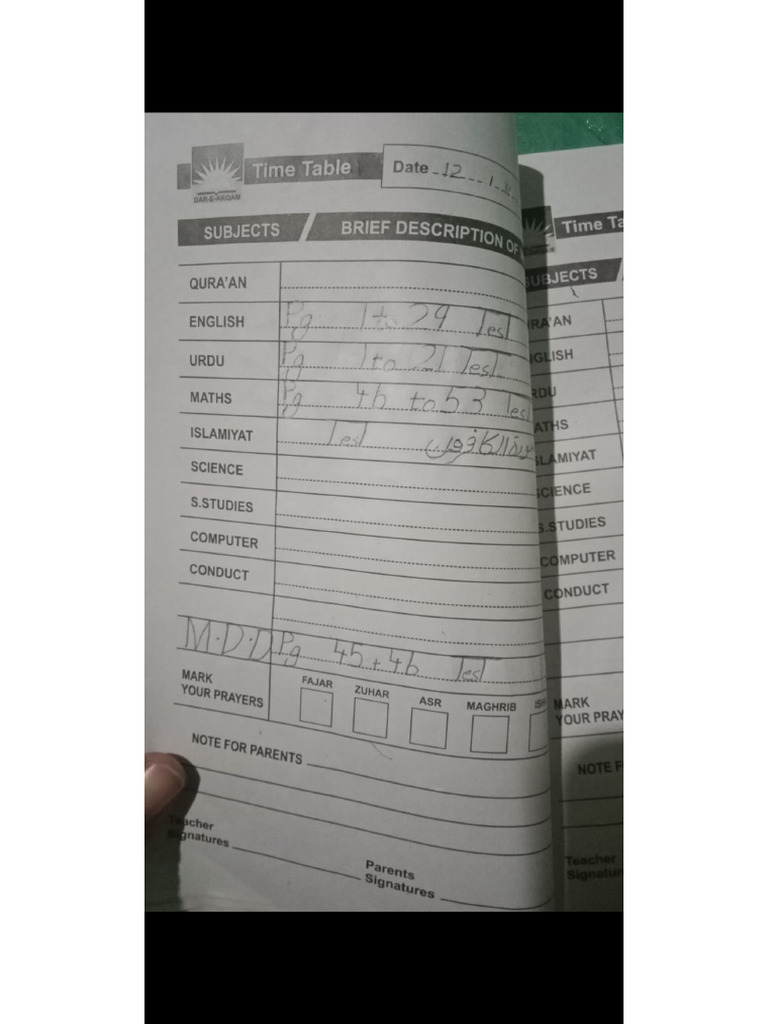 DAR-E-ARQAM
Time Table
Date 12
SUBJECTS / BRIEF DESCRIPTION OF
QURA'AN
ENGLISH Pg 1 to 29 Test
URDU Pg 1 to 21 Test
MATHS Pg 46 to 53 Test
ISLAMIYAT Test سورة الكافرون
SCIENCE
S.STUDIES
COMPUTER
CONDUCT
M.D.D Pg 45 + 46 Test
MARK YOUR PRAYERS
FAJAR ZUHAR ASR MAGHRIB
NOTE FOR PARENTS
Teacher
Signatures
Parents
Signatures
Time
SUBJECTS
GLISH
ISLAMIYAT
SCIENCE
S.STUDIES
COMPUTER
CONDUCT
MARK
YOUR PRAY
NOTE F
Teacher
Signatur